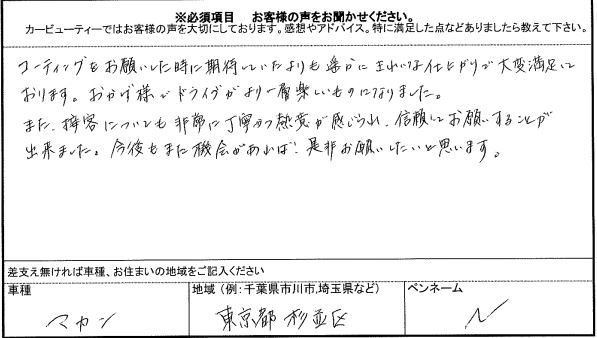 ※必須項目　お客様の声をお聞かせください。
カービューティーではお客様の声を大切にしております。感想やアドバイス。特に満足した点などありましたら教えて下さい。
コーティングをお願いした時に期待していたよりも遥かにきれいな仕上がりで大変満足して
おります。おかげ様でドライブがより一層楽しいものになりました。
また、接客についても非常に丁寧かつ熱意が感じられ、信頼してお願いすることが
出来ました。今後もまた機会があれば、是非お願いしたいと思います。
差支え無ければ車種、お住まいの地域をご記入ください
車種　地域（例：千葉県市川市,埼玉県など）　ペンネーム
マカン　東京都杉並区　N